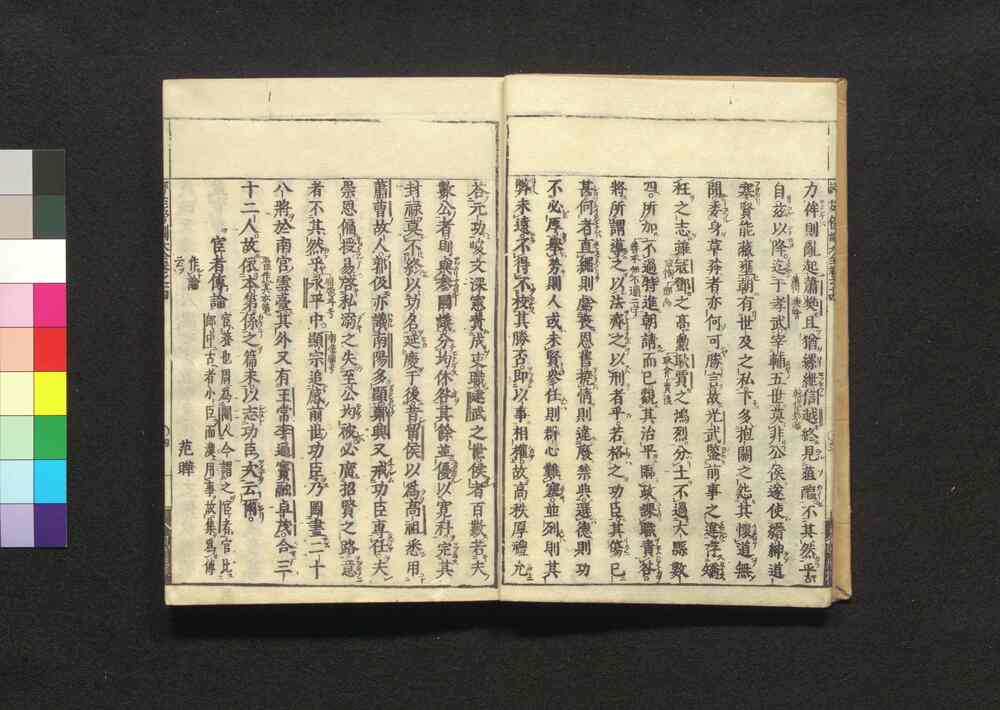 力侔則亂起蕭樊且猶縲紲信越終見菹醢不其然乎
自茲以降迄于孝武宰輔五世莫非公侯遂使縉紳道
塞賢能蔽壅朝有世及之私下多抱關之怨其懷道無
聞委身草莽者亦何可勝言故光武鑒前事之違存矯
枉之志雖寇鄧之高勳耿賈之鴻烈分土不過大縣數
四所加不過特進朝請而已觀其治平臨政課職責咎
將所謂導之以法齊之以刑者乎若格之功臣其傷已
甚何者直繩則虧喪恩舊撓情則違廢禁典選德則功
不必厚舉勞則人或未賢參任則群心難塞並列則其
弊未遠不得不校其勝否即以事相權故高秩厚禮允
答元功峻文深憲責成吏職建武之世侯者百數若夫
數公者則與參國議分均休咎其餘並優以寬科完其
封祿莫不終以功名延慶于後昔留侯以爲高祖悉用
蕭曹故人郭伋亦譏南陽多顯鄭興又戒功臣專任夫
崇恩偏授易啓私溺之失至公均被必廣招賢之路意
者不其然乎永平中顯宗追感前世功臣乃圖畫二十
八將於南宮雲臺其外又有王常李通竇融卓茂合三
十二人故依本第係之篇末以志功臣次云爾。
宦者傳論
官養也周爲閽人今謂之宦者官比
郎中古者小臣而漢用事故集爲傳
作論
云
范曄